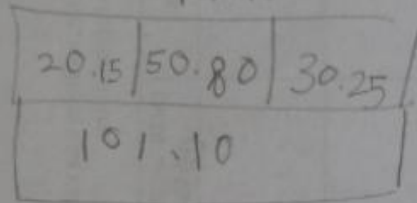 20.15 50.80 30.25
101.10